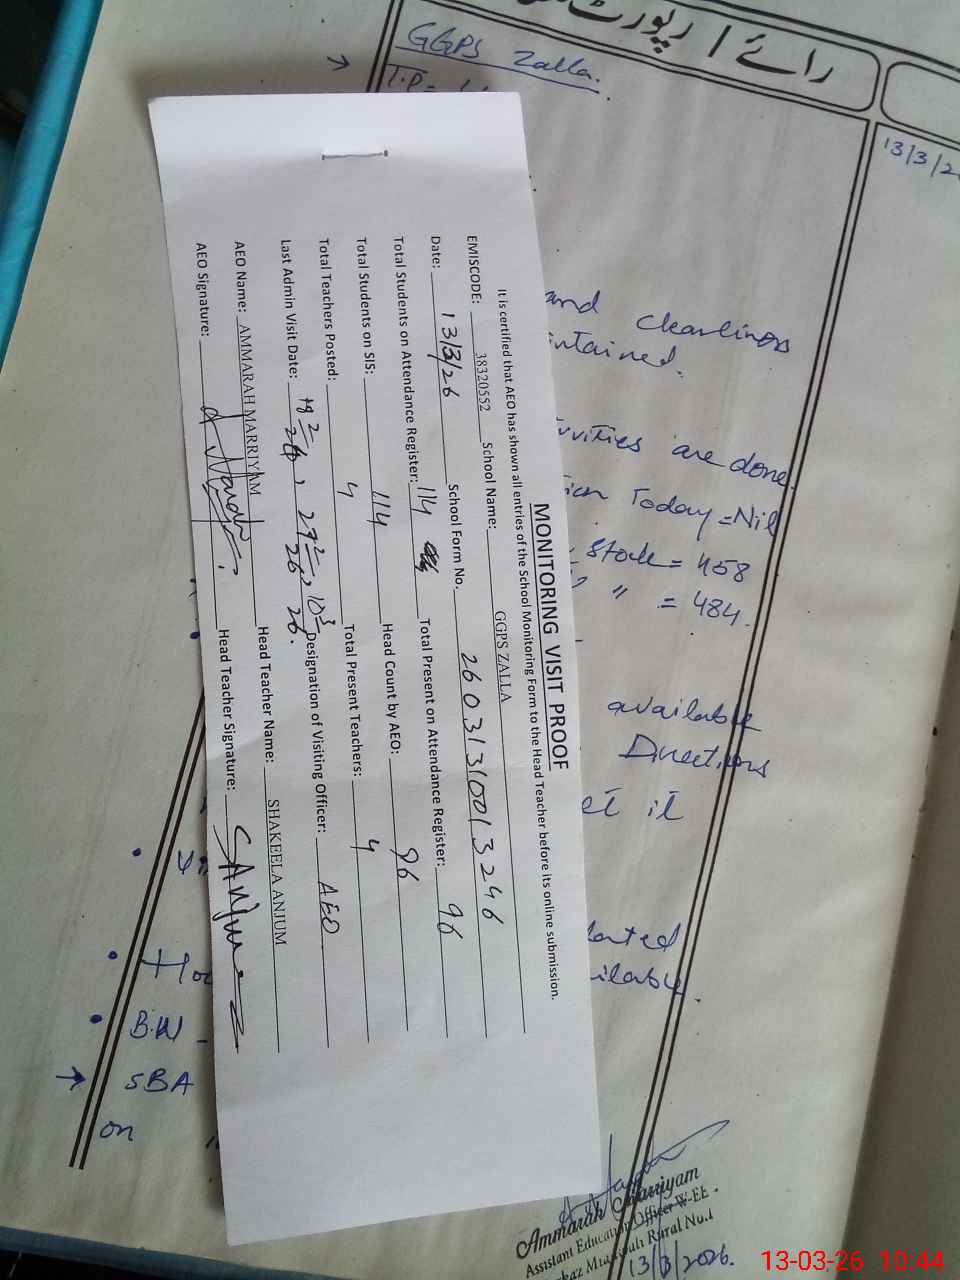 رائے / رپورٹ
GGPS Zalla.
T.P =
13/3/26
MONITORING VISIT PROOF
It is certified that AEO has shown all entries of the School Monitoring Form to the Head Teacher before its online submission.
EMISCODE: 38320552 School Name: GGPS ZALLA
Date: 13/3/26 School Form No. 26031310013246
Total Students on Attendance Register: 114 Total Present on Attendance Register: 96
Total Students on SIS: 114 Head Count by AEO: 96
Total Teachers Posted: 4 Total Present Teachers: 4
Last Admin Visit Date: Designation of Visiting Officer: AEO
AEO Name: AMMARAH MARRIYAM Head Teacher Name: SHAKEELA ANJUM
AEO Signature: Head Teacher Signature: SAnjum
and
are done
Today = Nil
Stock = 458
" " = 484.
available
Directions
it
B.W -
SBA
on
Ammarah Marriyam
Assistant Education Officer W-EE
Rural No.1
13/3/2026.
13-03-26 10:44